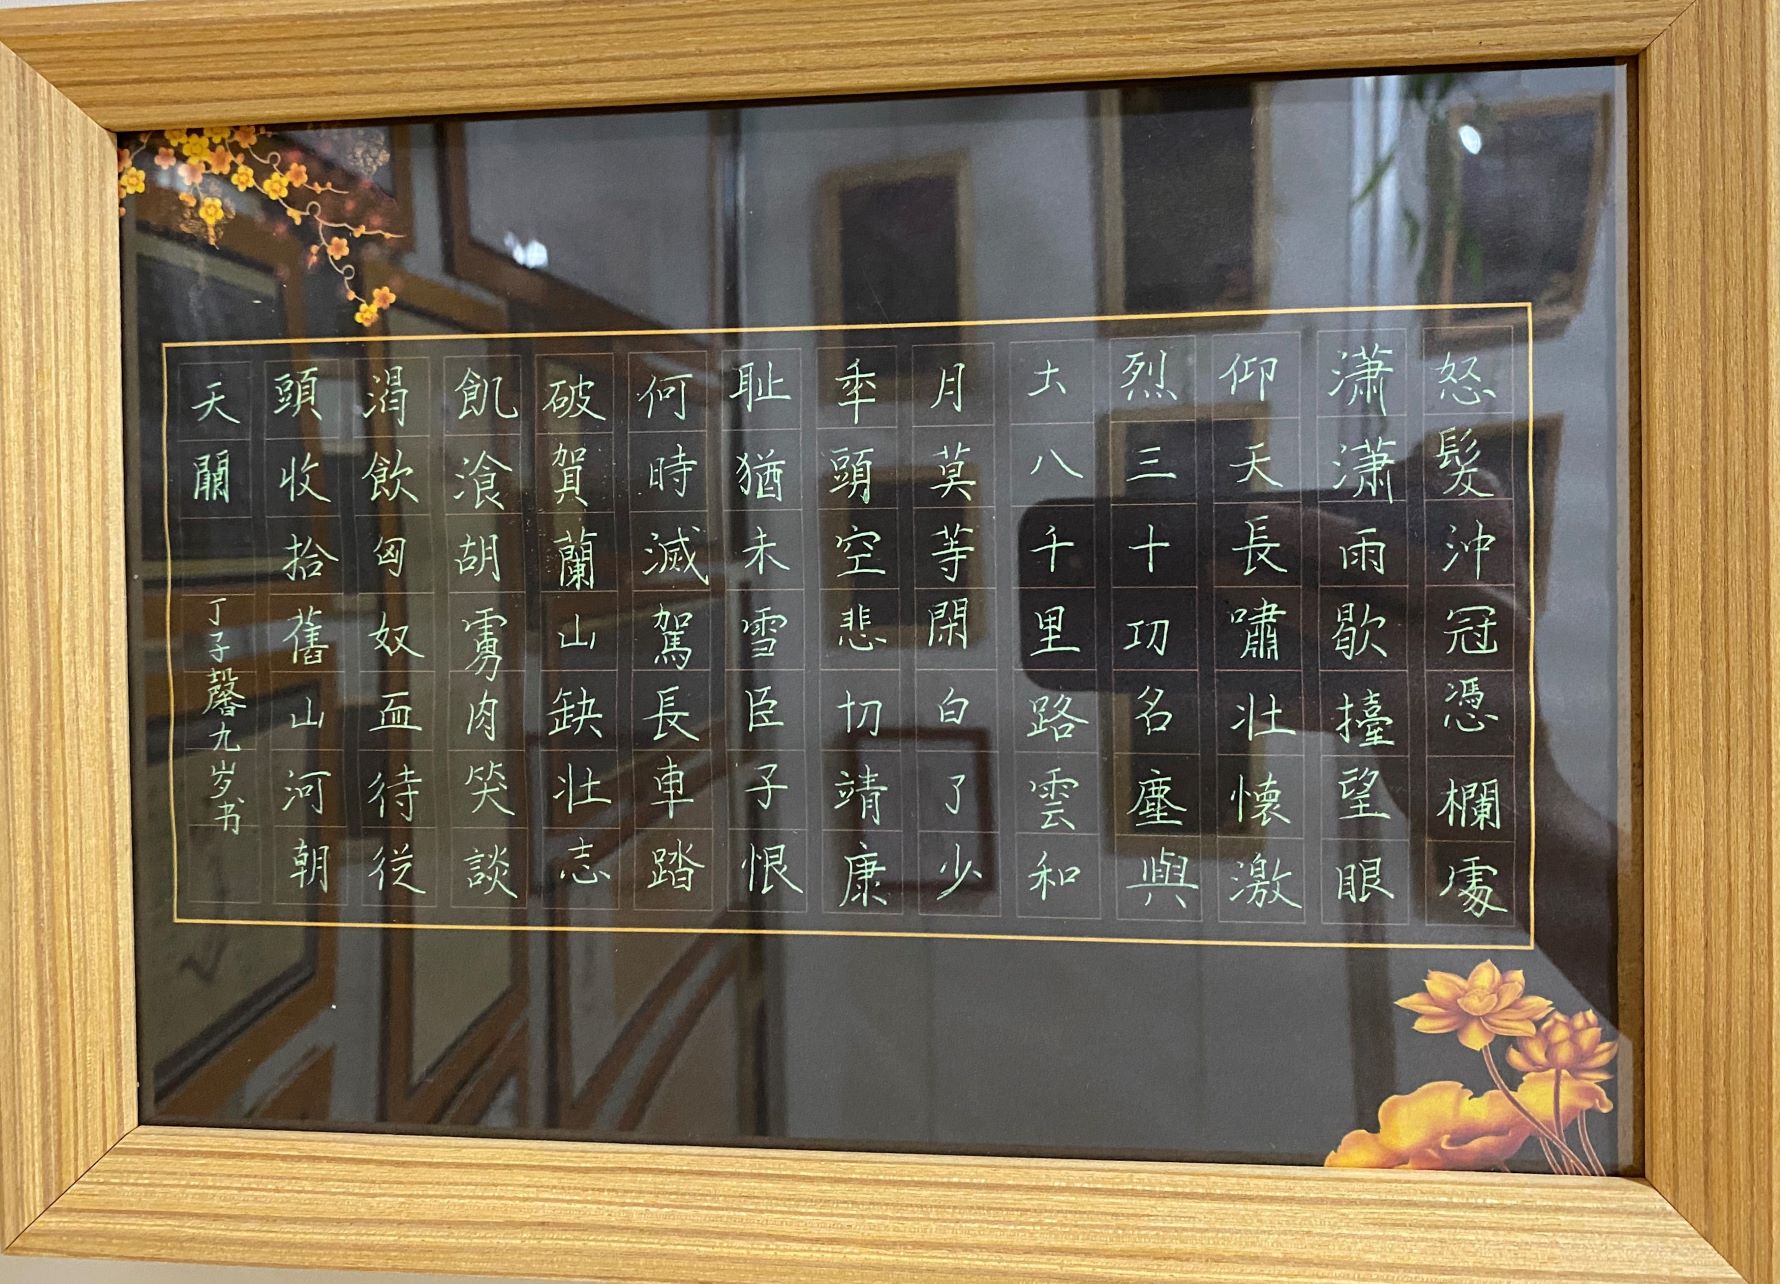 怒髮沖冠慿欄處
潇潇雨歇擡望眼
仰天長嘯壯懷激
烈三十功名塵與
土八千里路雲和
月莫等閑白了少
年頭空悲切靖康
耻猶未雪臣子恨
何時滅駕長車踏
破賀蘭山缺壯志
飢湌胡虜肉笑談
渴飲匈奴血待從
頭收拾舊山河朝
天闕
丁子馨九岁书